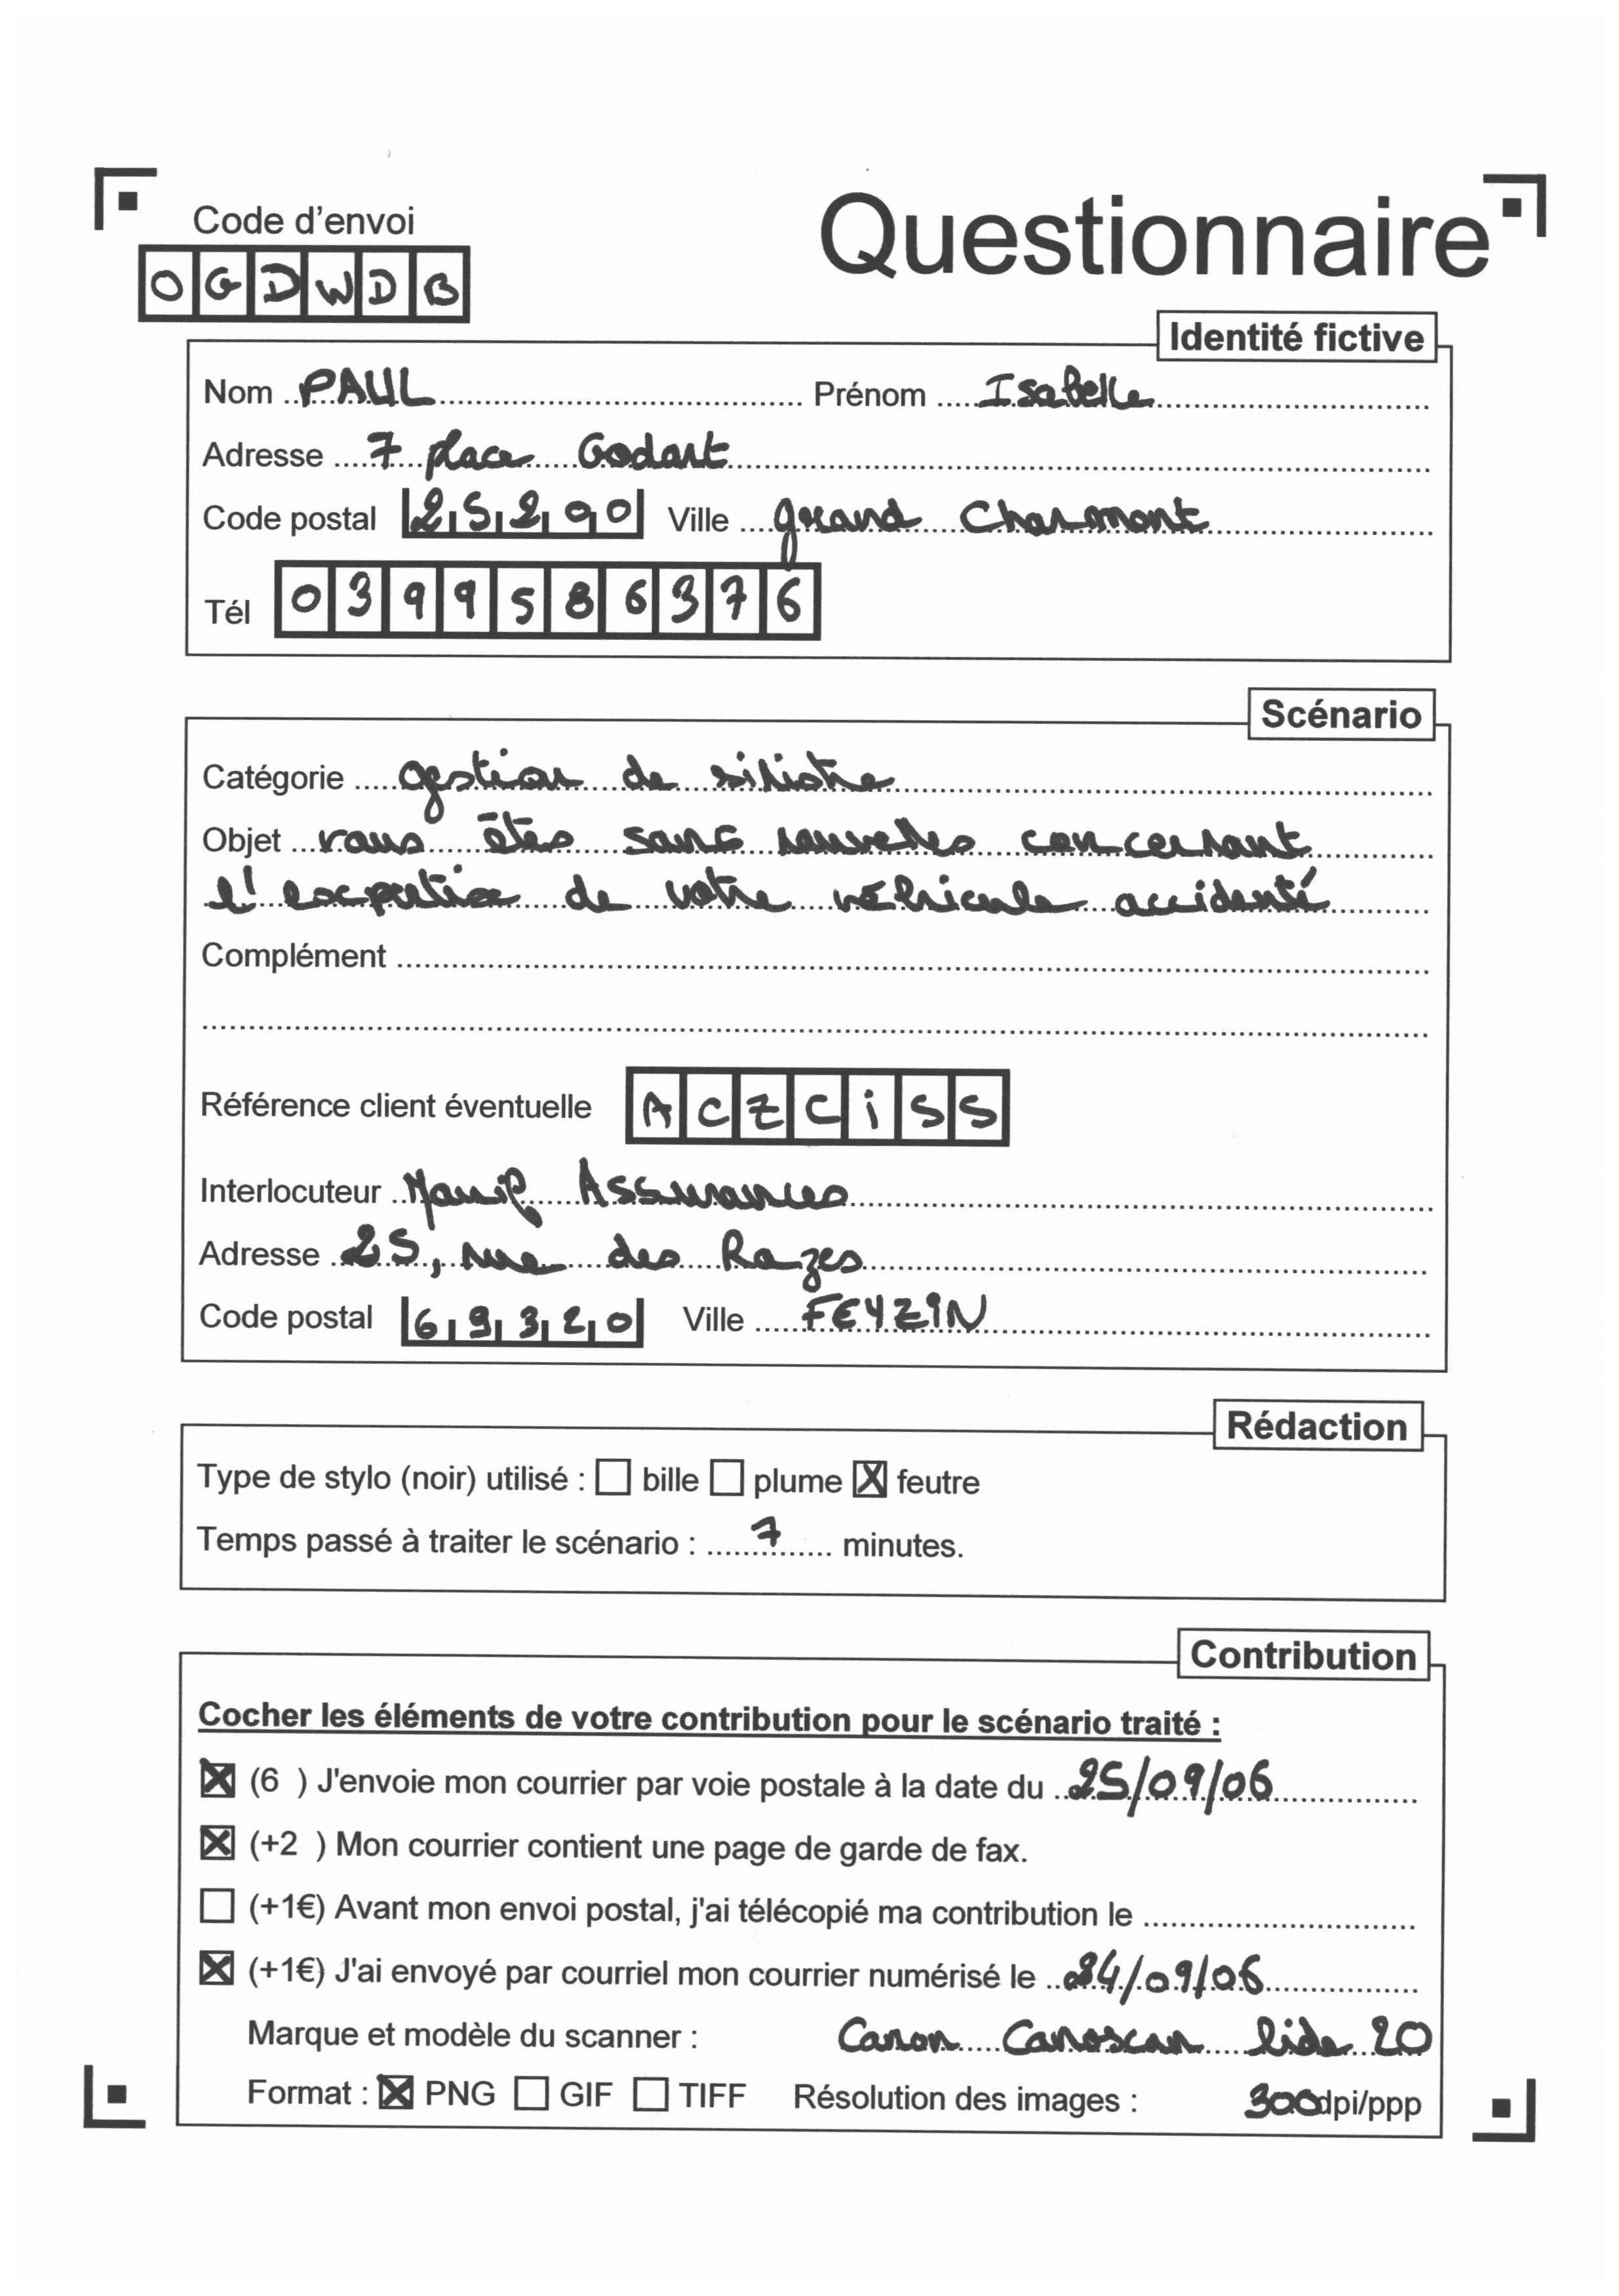 Code d'envoi
Questionnaire
OGDWDB
Identité fictive
Nom PAUL Prénom Isabelle
Adresse 7 place Godart
Code postal 25290 Ville grand Charmont
Tél 0399586376
Scénario
Catégorie gestion de sinistre
Objet vous êtes sans nouvelles concernant
l'expertise de votre véhicule accidenté
Complément
Référence client éventuelle ACZCiSS
Interlocuteur Manif Assurances
Adresse 25, rue des Razes
Code postal 69320 Ville FEYZiN
Rédaction
Type de stylo (noir) utilisé : bille plume X feutre
Temps passé à traiter le scénario : 7 minutes.
Contribution
Cocher les éléments de votre contribution pour le scénario traité :
X (6 ) J'envoie mon courrier par voie postale à la date du 25/09/06
X (+2 ) Mon courrier contient une page de garde de fax.
(+1€) Avant mon envoi postal, j'ai télécopié ma contribution le
X (+1€) J'ai envoyé par courriel mon courrier numérisé le 24/09/06
Marque et modèle du scanner : Canon Canoscan lide 20
Format : X PNG GIF TIFF Résolution des images : 300dpi/ppp